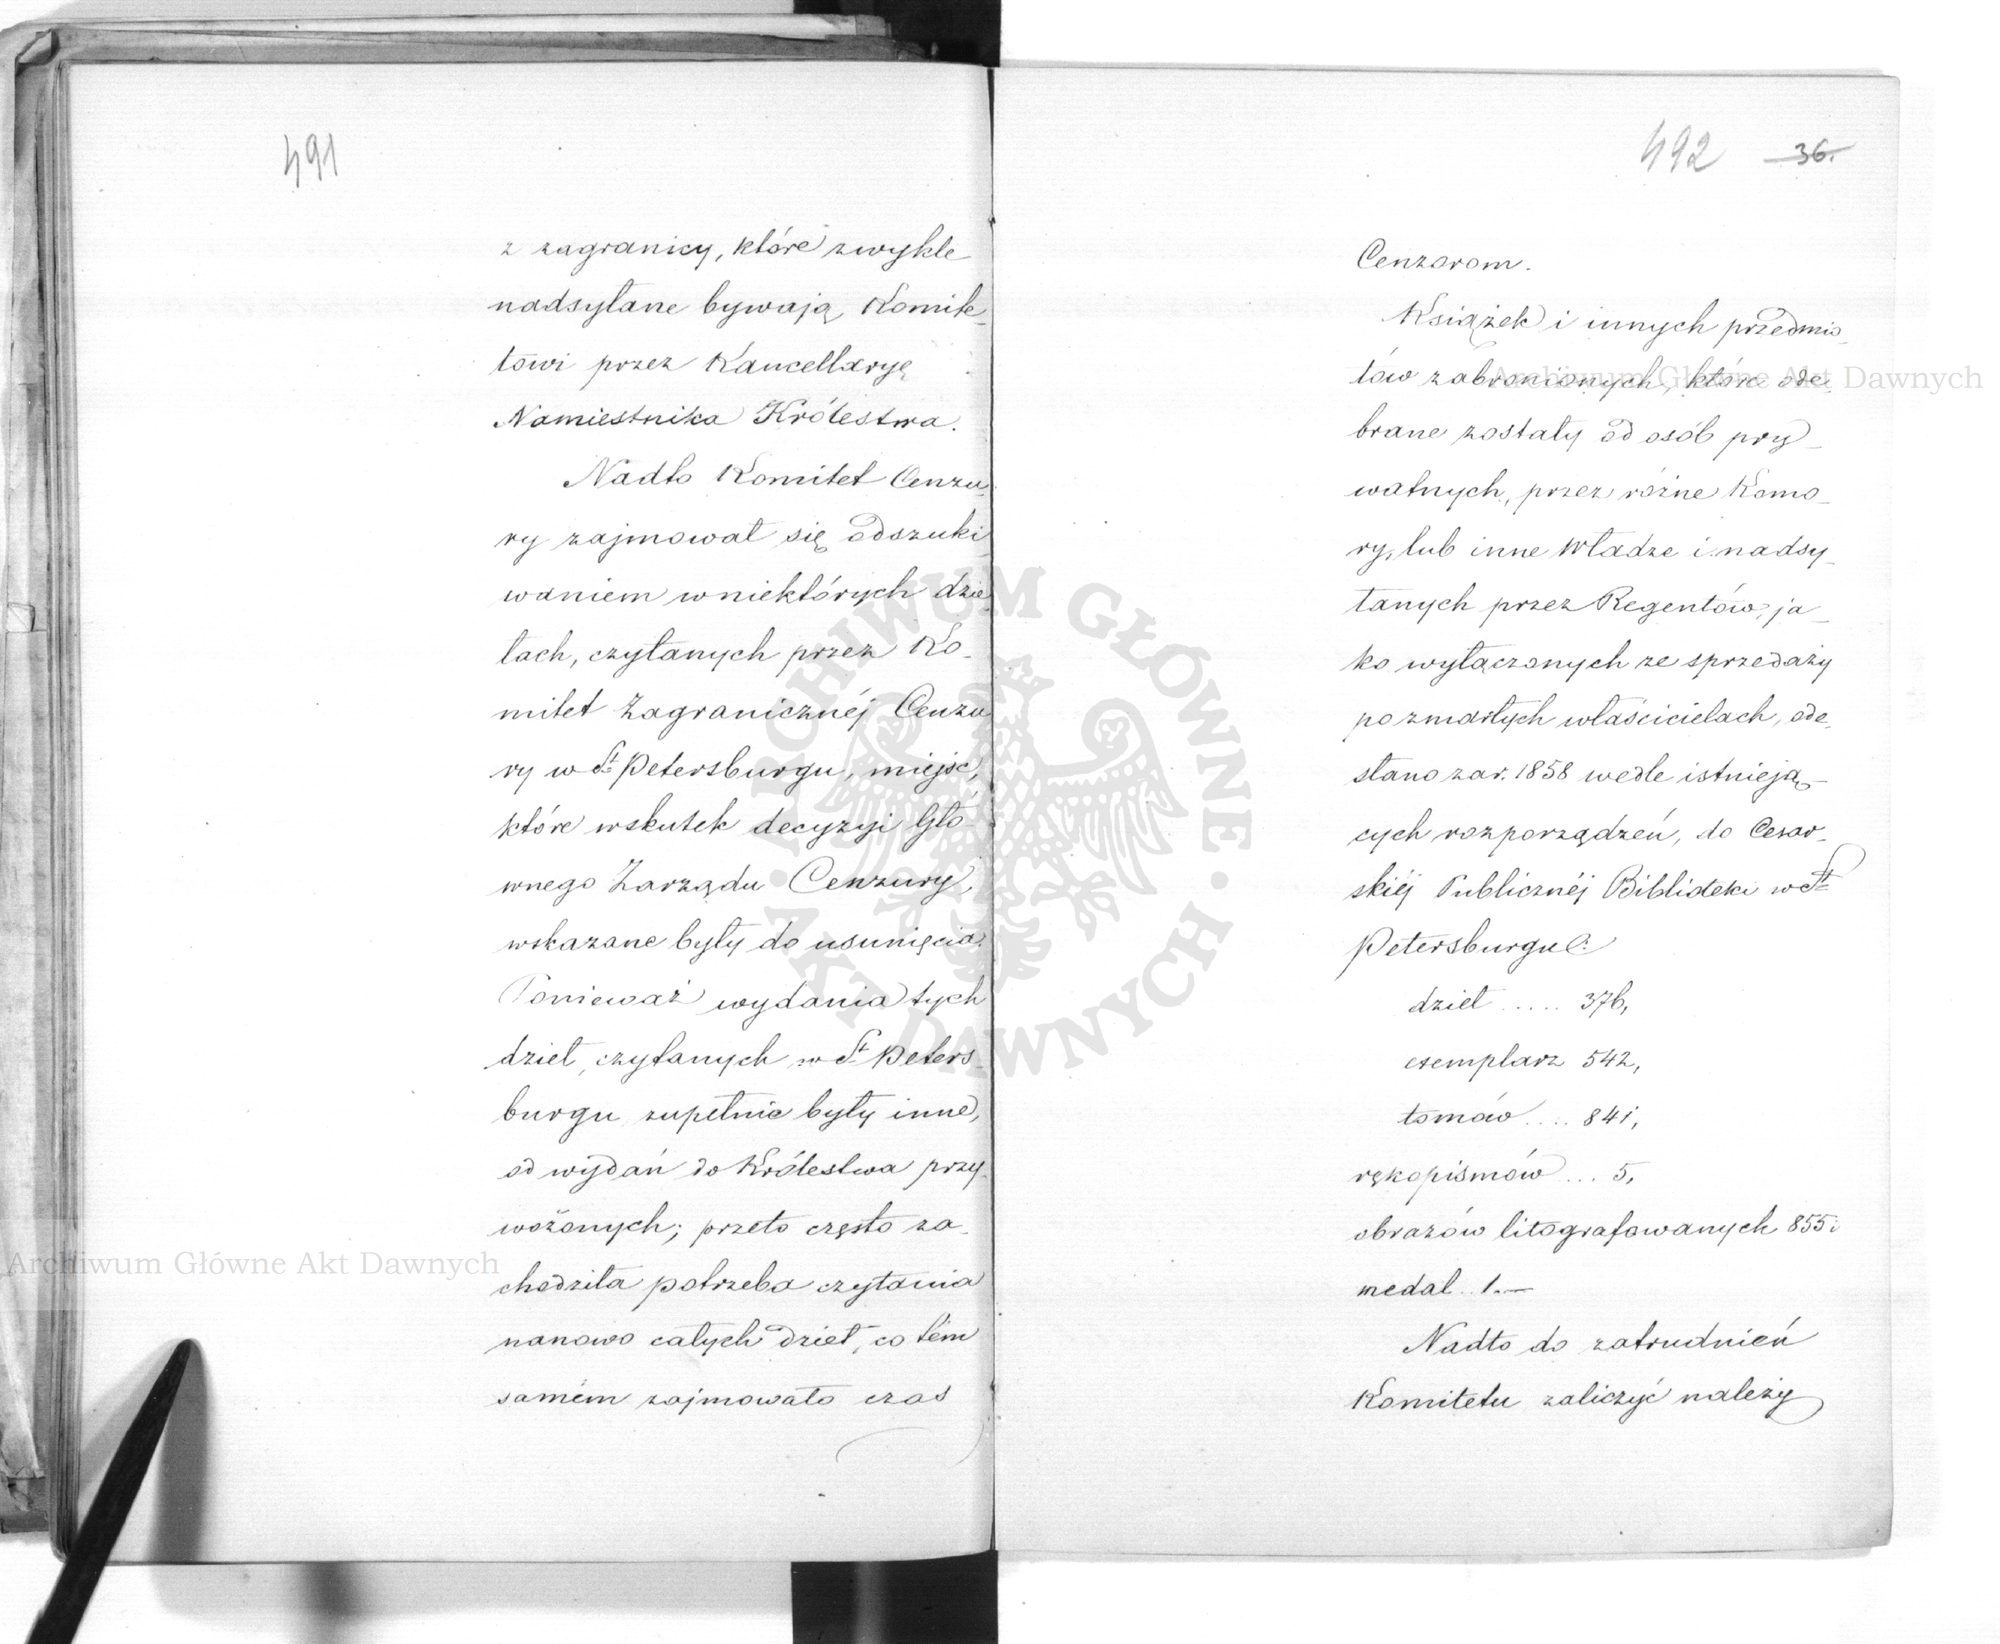 491
z zagranicy, które zwykle
nadsyłane bywają Komite-
towi przez Kancellaryę
Namiestnika Królestwa.
Nadto Komitet Cenzu-
ry zajmował się odszuki-
waniem w niektórych dzie-
łach, czytanych przez Ko-
mitet Zagranicznéj Cenzu-
ry w St Petersburgu, miejsc,
które wskutek decyzyi Głó-
wnego Zarządu Cenzury,
wskazane były do usunięcia.
Ponieważ wydania tych
dzieł, czytanych w St Peters-
burgu zupełnie były inne,
od wydań do Królestwa przy-
wożonych; przeto często za-
chodziła potrzeba czytania
nanowo całych dzieł, co tém
samém zajmowało czas
492 36.
Cenzorom.
Książek i innych przedmio-
tów zabronionych, które ode-
brane zostały od osób pry-
watnych, przez różne Komo-
ry, lub inne Władze i nadsy-
łanych przez Regentów, ja-
ko wyłączonych ze sprzedaży
po zmarłych właścicielach, ode-
słano za r. 1858 wedle istnieją-
cych rozporządzeń, do Cesar-
skiéj Publicznéj Biblioteki w St
Petersburgu:
dzieł ..... 376,
exemplarz 542,
tomów .... 841,
rękopismów ... 5,
obrazów litografowanych 855 i
medal .. 1.—
Nadto do zatrudnień
Komitetu zaliczyć należy
Archiwum Główne Akt Dawnych
Archiwum Główne Akt Dawnych
ARCHIWUM GŁÓWNE · AKT DAWNYCH ·